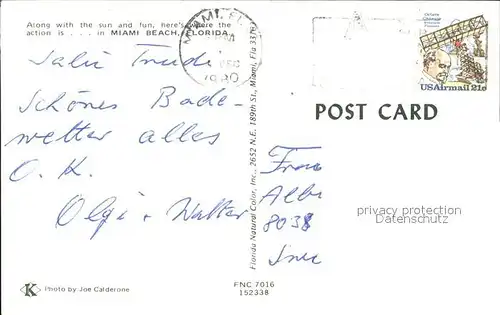 Along with the sun and fun, here's where the
action is . . . in MIAMI BEACH, FLORIDA.
Salü Trudi
Schönes Bade-
wetter alles
O. K.
Olgi + Walter
K Photo by Joe Calderone
FNC 7016
152338
Florida Natural Color, Inc., 2652 N.E. 189th St., Miami, Fla 331
MIAMI, FL
1980
Octave
Chanute
USAirmail 21c
POST CARD
Frau
8038
privacy protection
Datenschutz